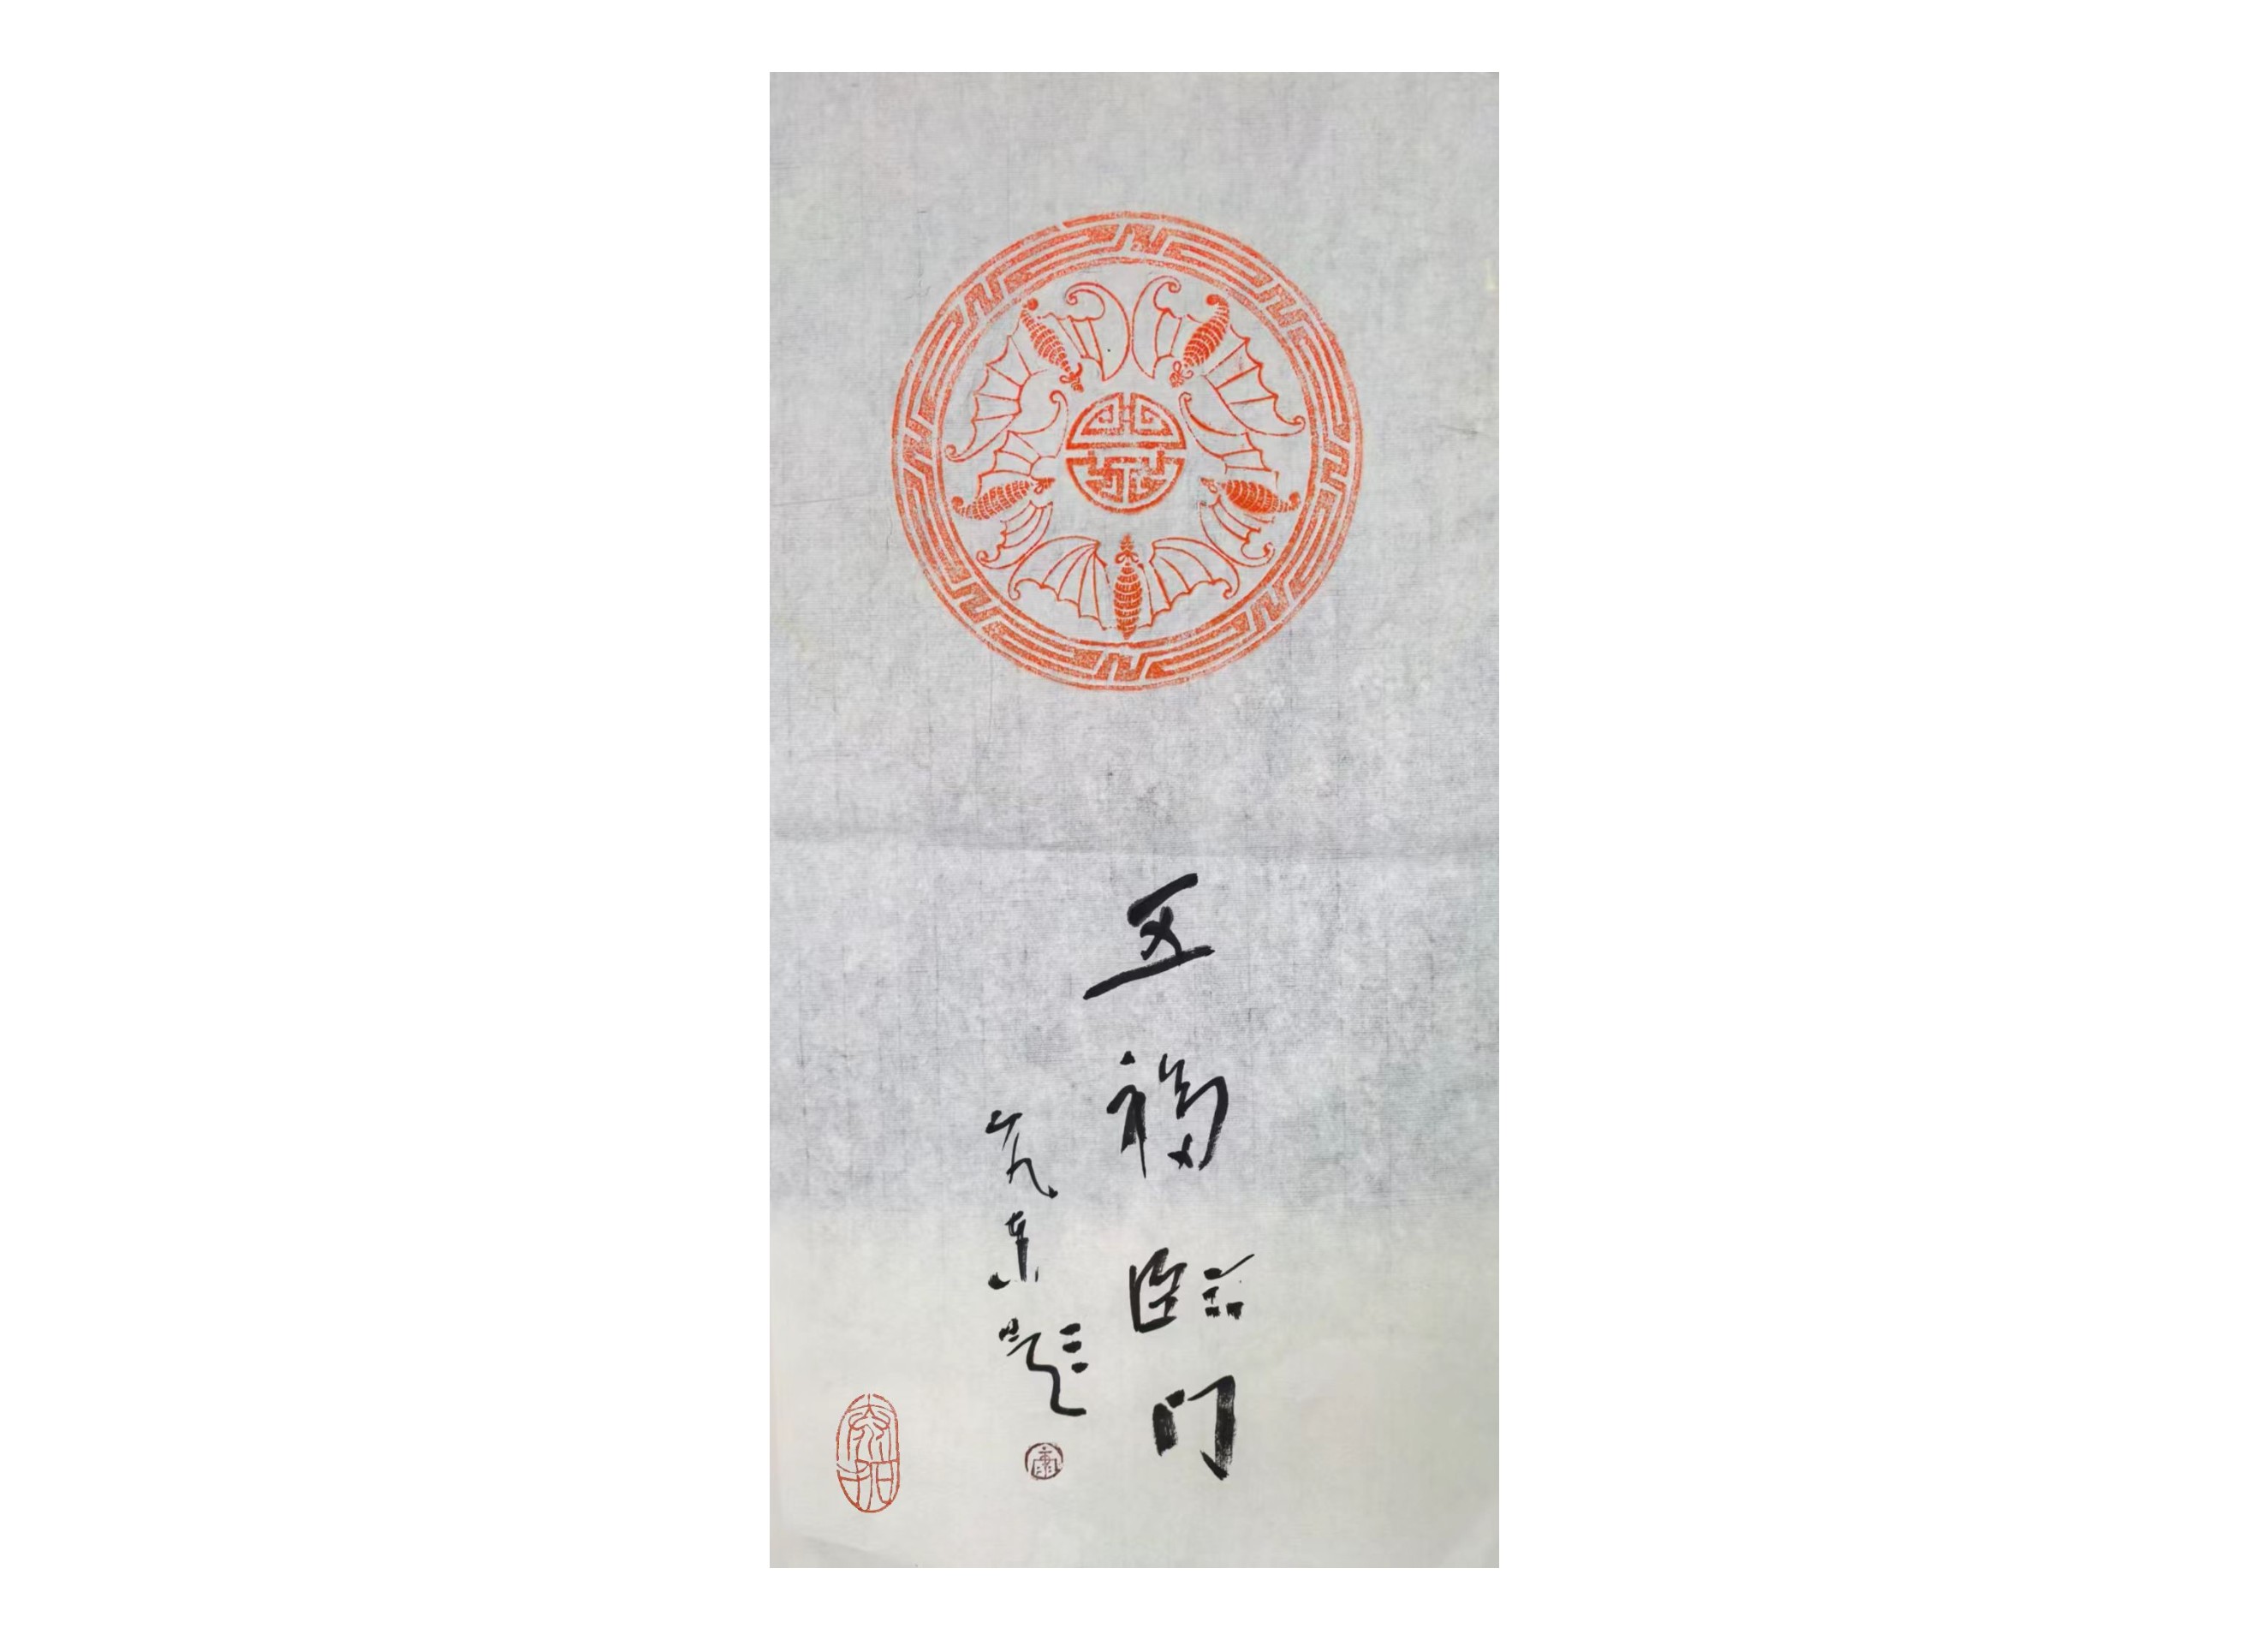 五福临门
题